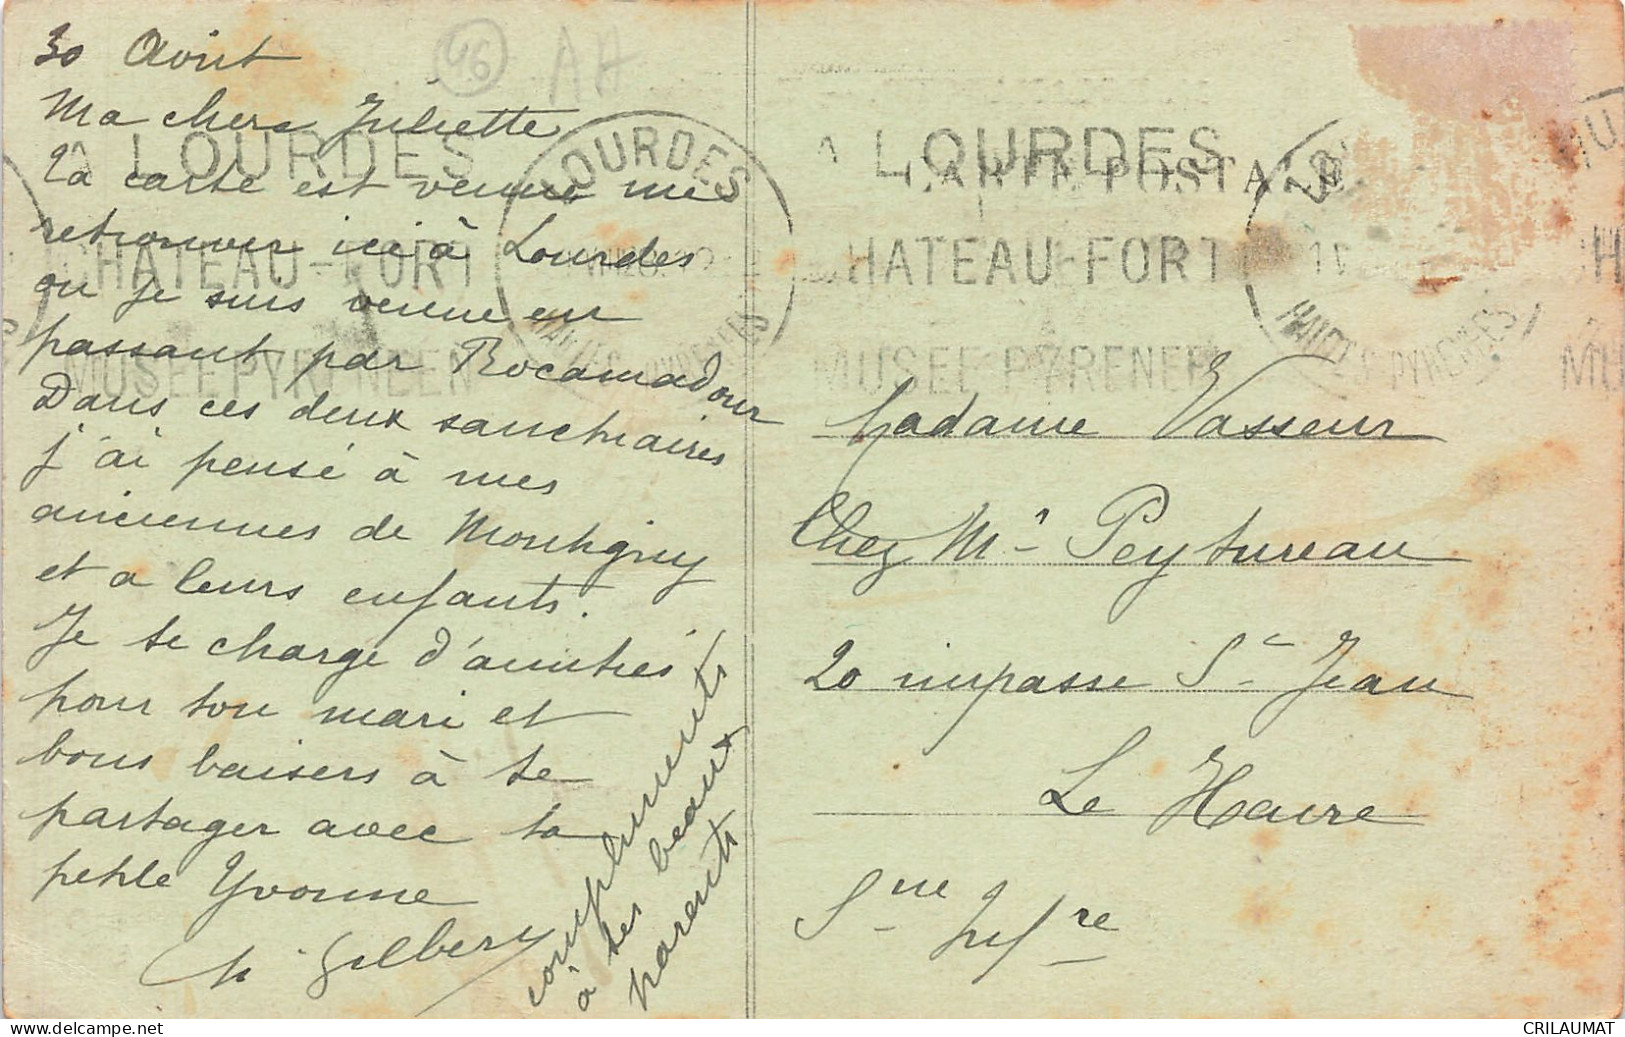 30 Août
46 AA
Ma chere Juliette
Ta carte est venue me
retrouver ici à Lourdes
ou je suis venue en
passant par Rocamadour
Dans ces deux sanctuaires
j'ai pensé à mes
anciennes de Montigny
et a leurs enfants.
Je te charge d'amitiés
pour ton mari et
bons baisers à te
partager avec ta
petite Yvonne
Gilbery
compliments
à tes beaux
parents
A LOURDES
CHATEAU-FORT
MUSEE PYRENEEN
LOURDES
HAUTES PYRENEES
A LOURDES
CHATEAU-FORT
MUSEE PYRENEE
HAUTES PYRENEES
MU
CH
MU
CARTE POSTALE
Madame Vasseur
Chez Mr Peytureau
20 impasse St Jean
Le Havre
Sne Infre
CRILAUMAT